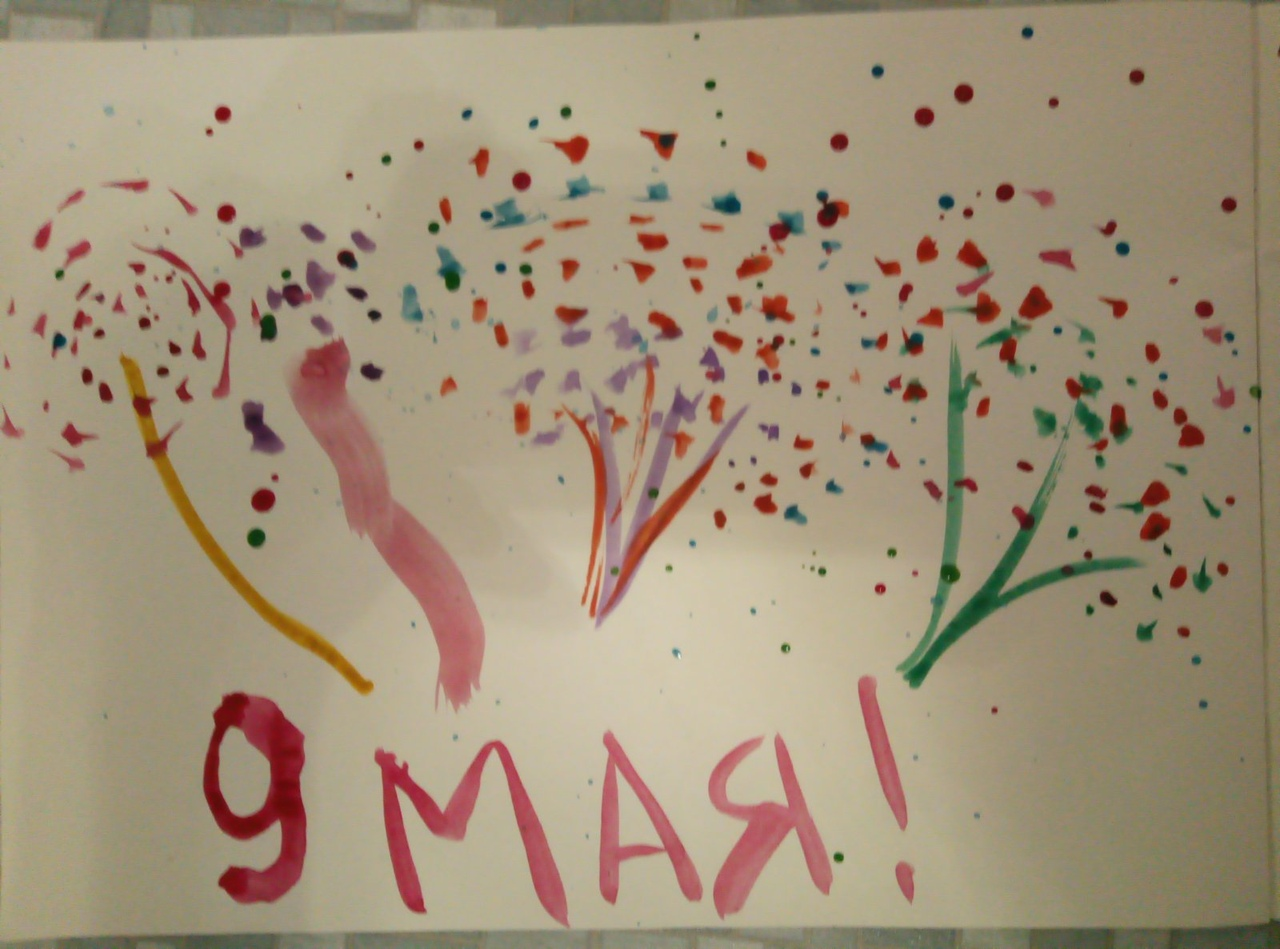 9 МАЯ!